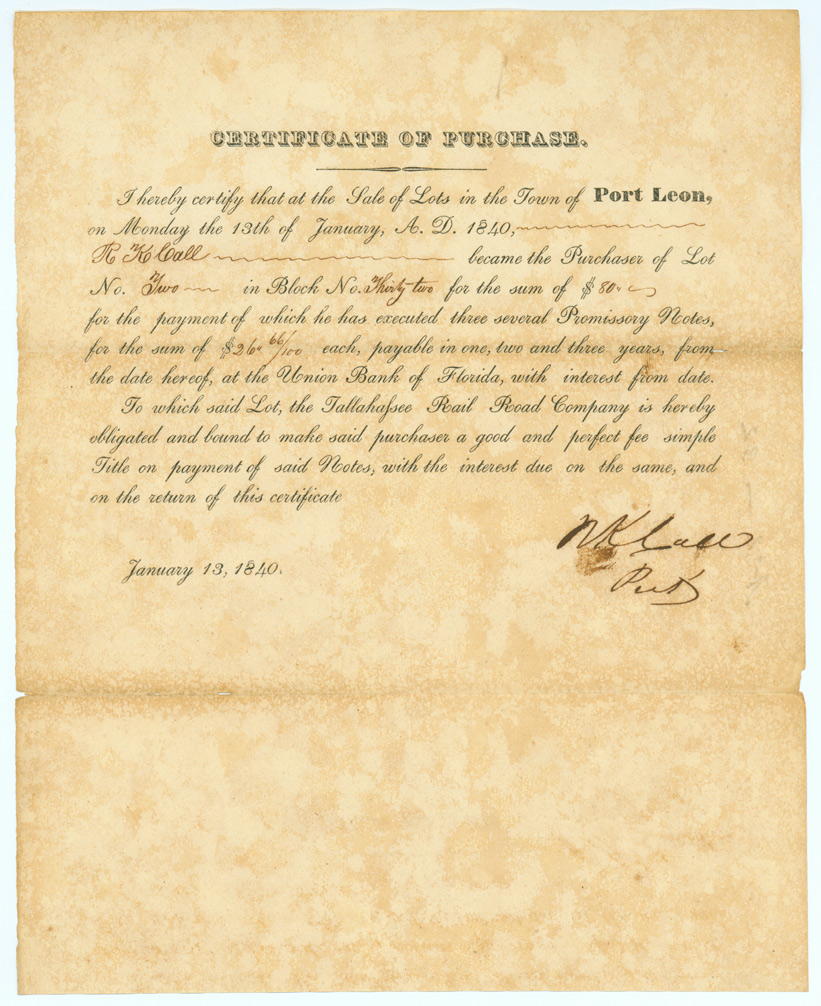 CERTIFICATE OF PURCHASE.
I hereby certify that at the Sale of Lots in the Town of Port Leon,
on Monday the 13th of January, A. D. 1840,
R K Call became the Purchaser of Lot
No. Two in Block No. Thirty two for the sum of $ 80
for the payment of which he has executed three several Promissory Notes,
for the sum of $26 66/100 each, payable in one, two and three years, from
the date hereof, at the Union Bank of Florida, with interest from date.
To which said Lot, the Tallahaſsee Rail Road Company is hereby
obligated and bound to make said purchaser a good and perfect fee simple
Title on payment of said Notes, with the interest due on the same, and
on the return of this certificate
R K Call
January 13, 1840.